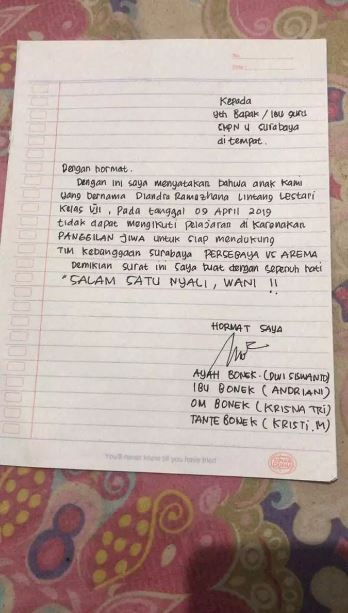 No.
Date:
Kepada
Yth Bapak / Ibu guru
SMPN 4 Surabaya
di tempat.
Dengan hormat.
Dengan ini saya menyatakan bahwa anak kami
yang bernama Diandra Ramazhana Lintang Lestari
Kelas VII, Pada tanggal 09 April 2019
tidak dapat mengikuti pelajaran di karenakan
PANGGILAN JIWA untuk siap mendukung
TIM KEBANGGAAN SURABAYA PERSEBAYA VS AREMA
Demikian surat ini saya buat dengan sepenuh hati
"SALAM SATU NYALI, WANI !!
HORMAT SAYA
AYAH BONEK. (DWI SISWANTO)
IBU BONEK (ANDRIANI)
OM BONEK (KRISNA TRI)
TANTE BONEK (KRISTI.M)
You'll never know till you have tried